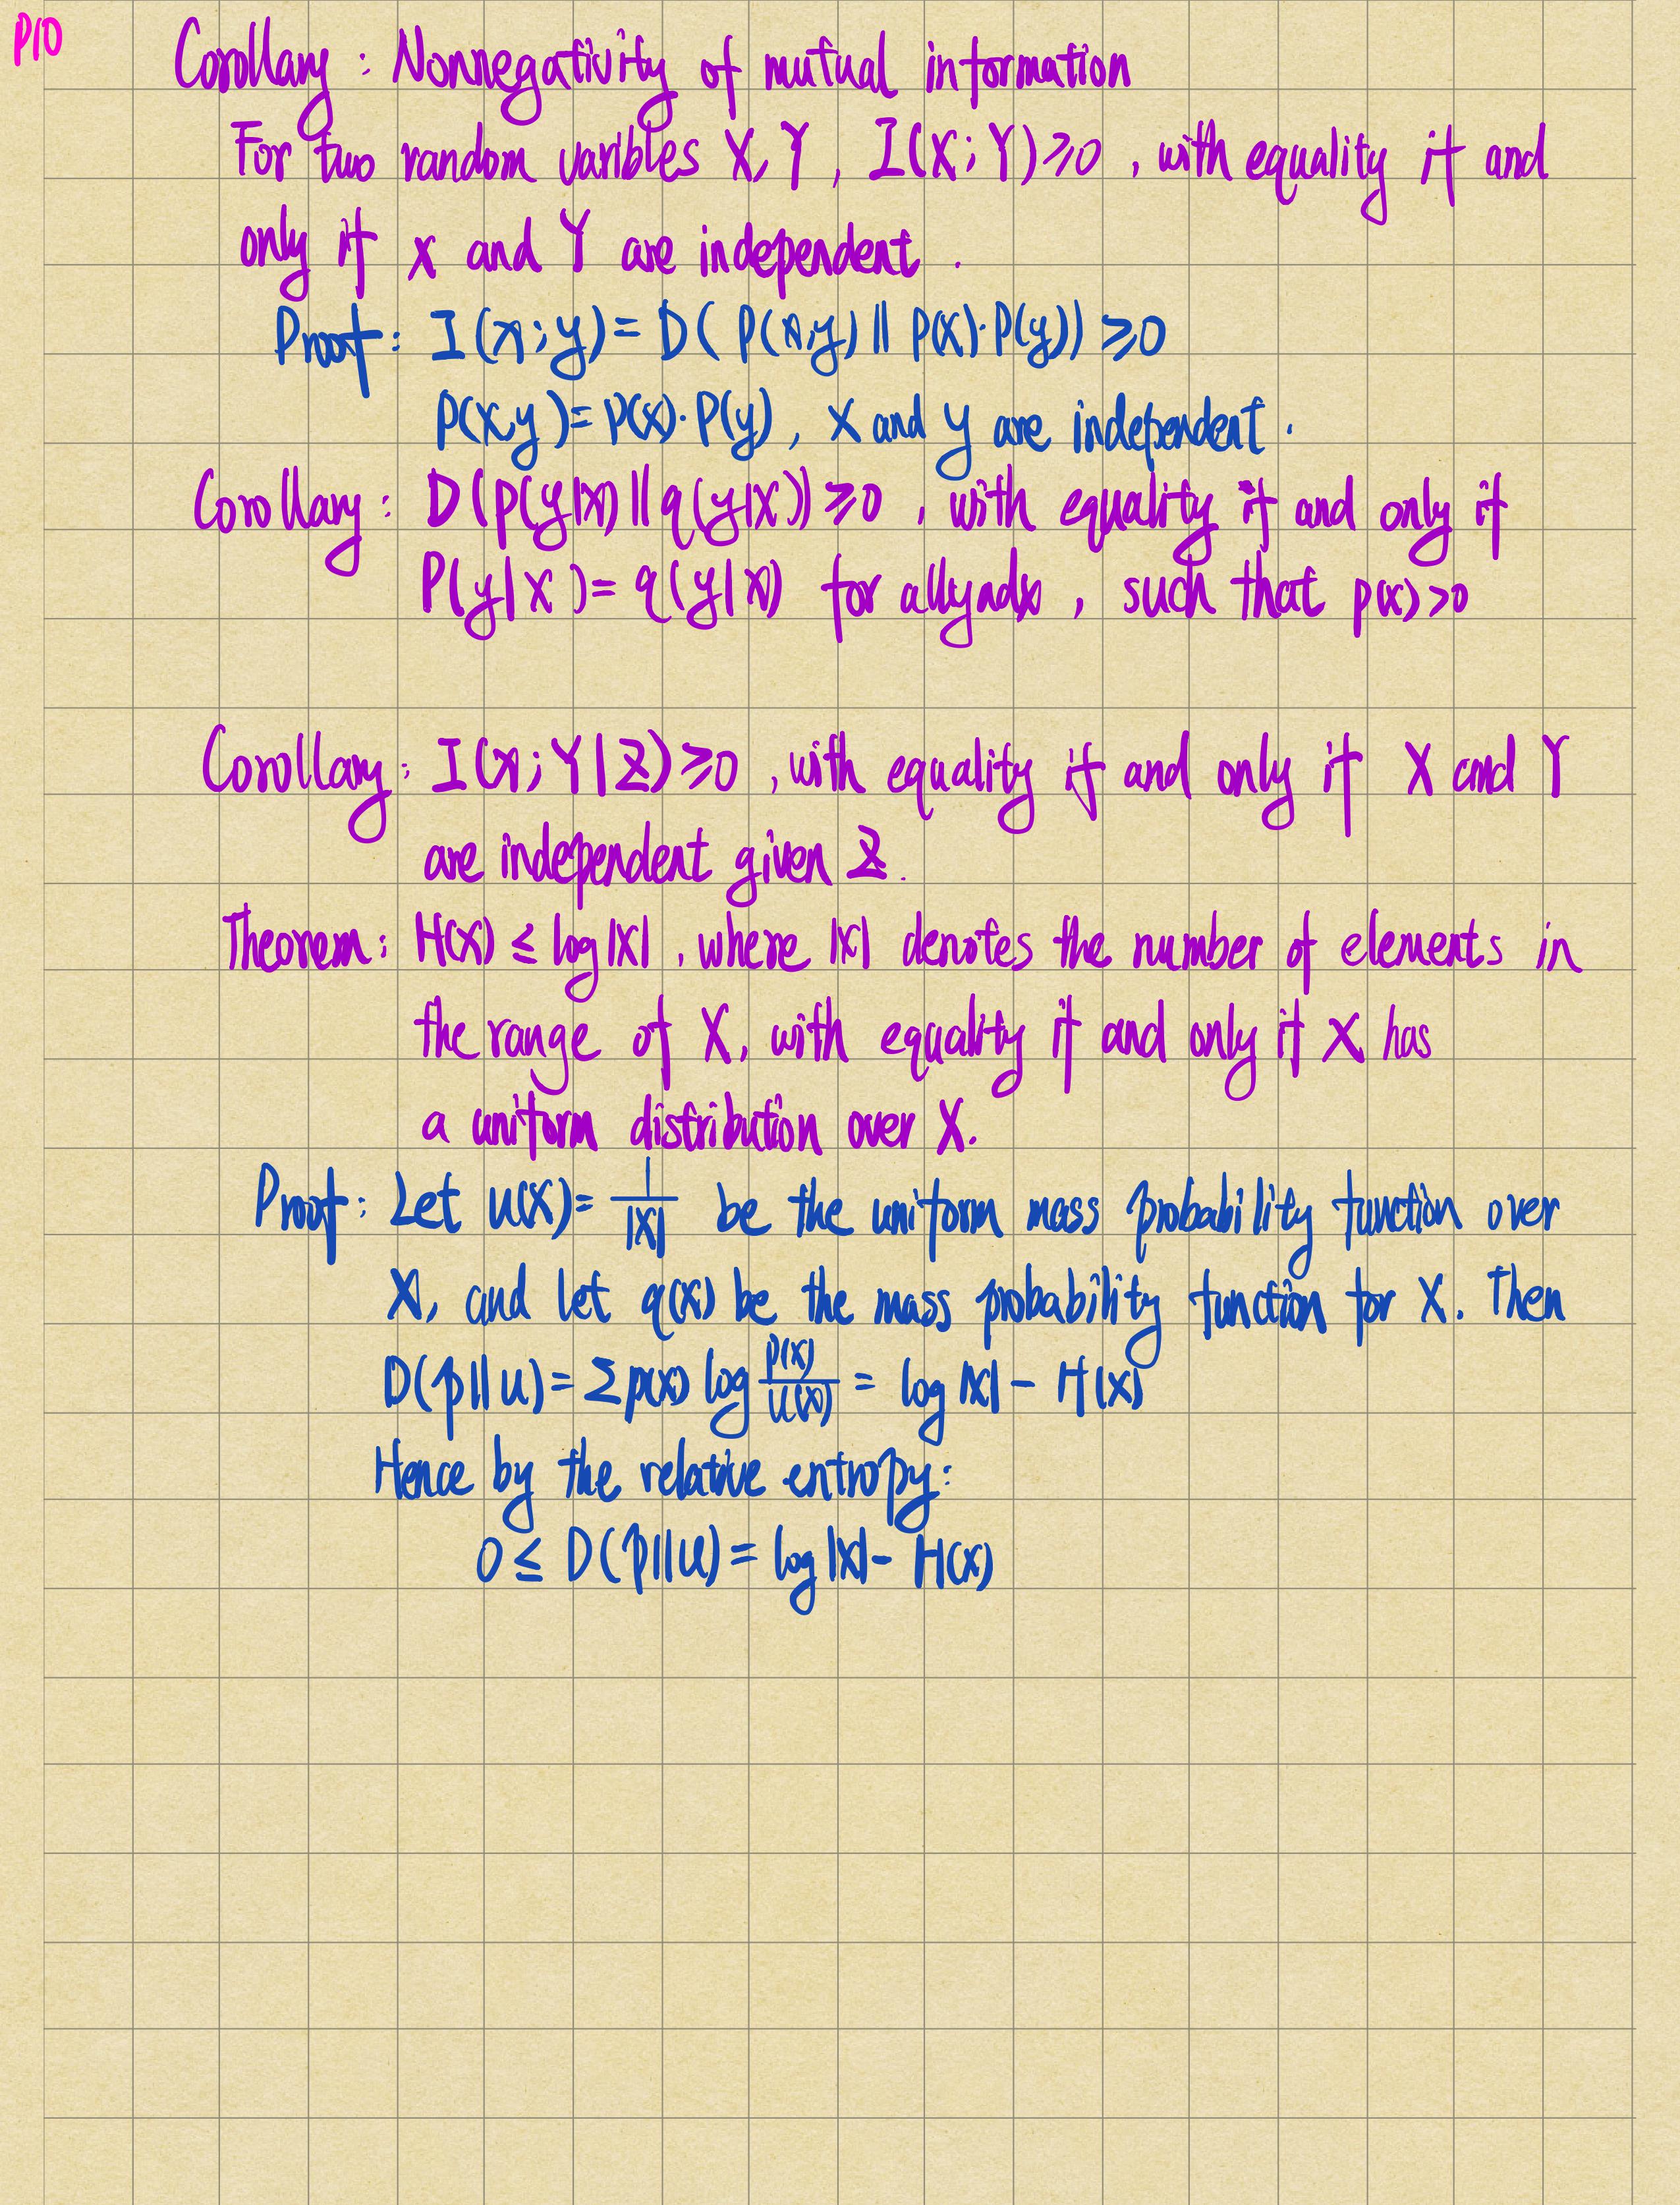 P10
Corollary : Nonnegativity of mutual information
For two random varibles X, Y , I(X; Y) ≥ 0 , with equality if and
only if X and Y are independent .
Proof : I(x; y) = D( P(x,y) || P(x)·P(y)) ≥ 0
P(x,y) = P(x)·P(y), X and y are independent .
Corollary : D(P(y|x) || q(y|x)) ≥ 0 , with equality if and only if
P(y|x) = q(y|x) for all y and x , such that p(x) > 0
Corollary : I(X; Y|Z) ≥ 0 , with equality if and only if X and Y
are independent given Z .
Theorem : H(X) ≤ log|X| , where |X| denotes the number of elements in
the range of X, with equality if and only if X has
a uniform distribution over X.
Proof : Let u(X) = 1/|X| be the uniform mass probability function over
X, and let q(x) be the mass probability function for X. Then
D(p||u) = Σ p(x) log P(x)/U(x) = log |X| - H(X)
Hence by the relative entropy :
0 ≤ D(p||u) = log |X| - H(X)